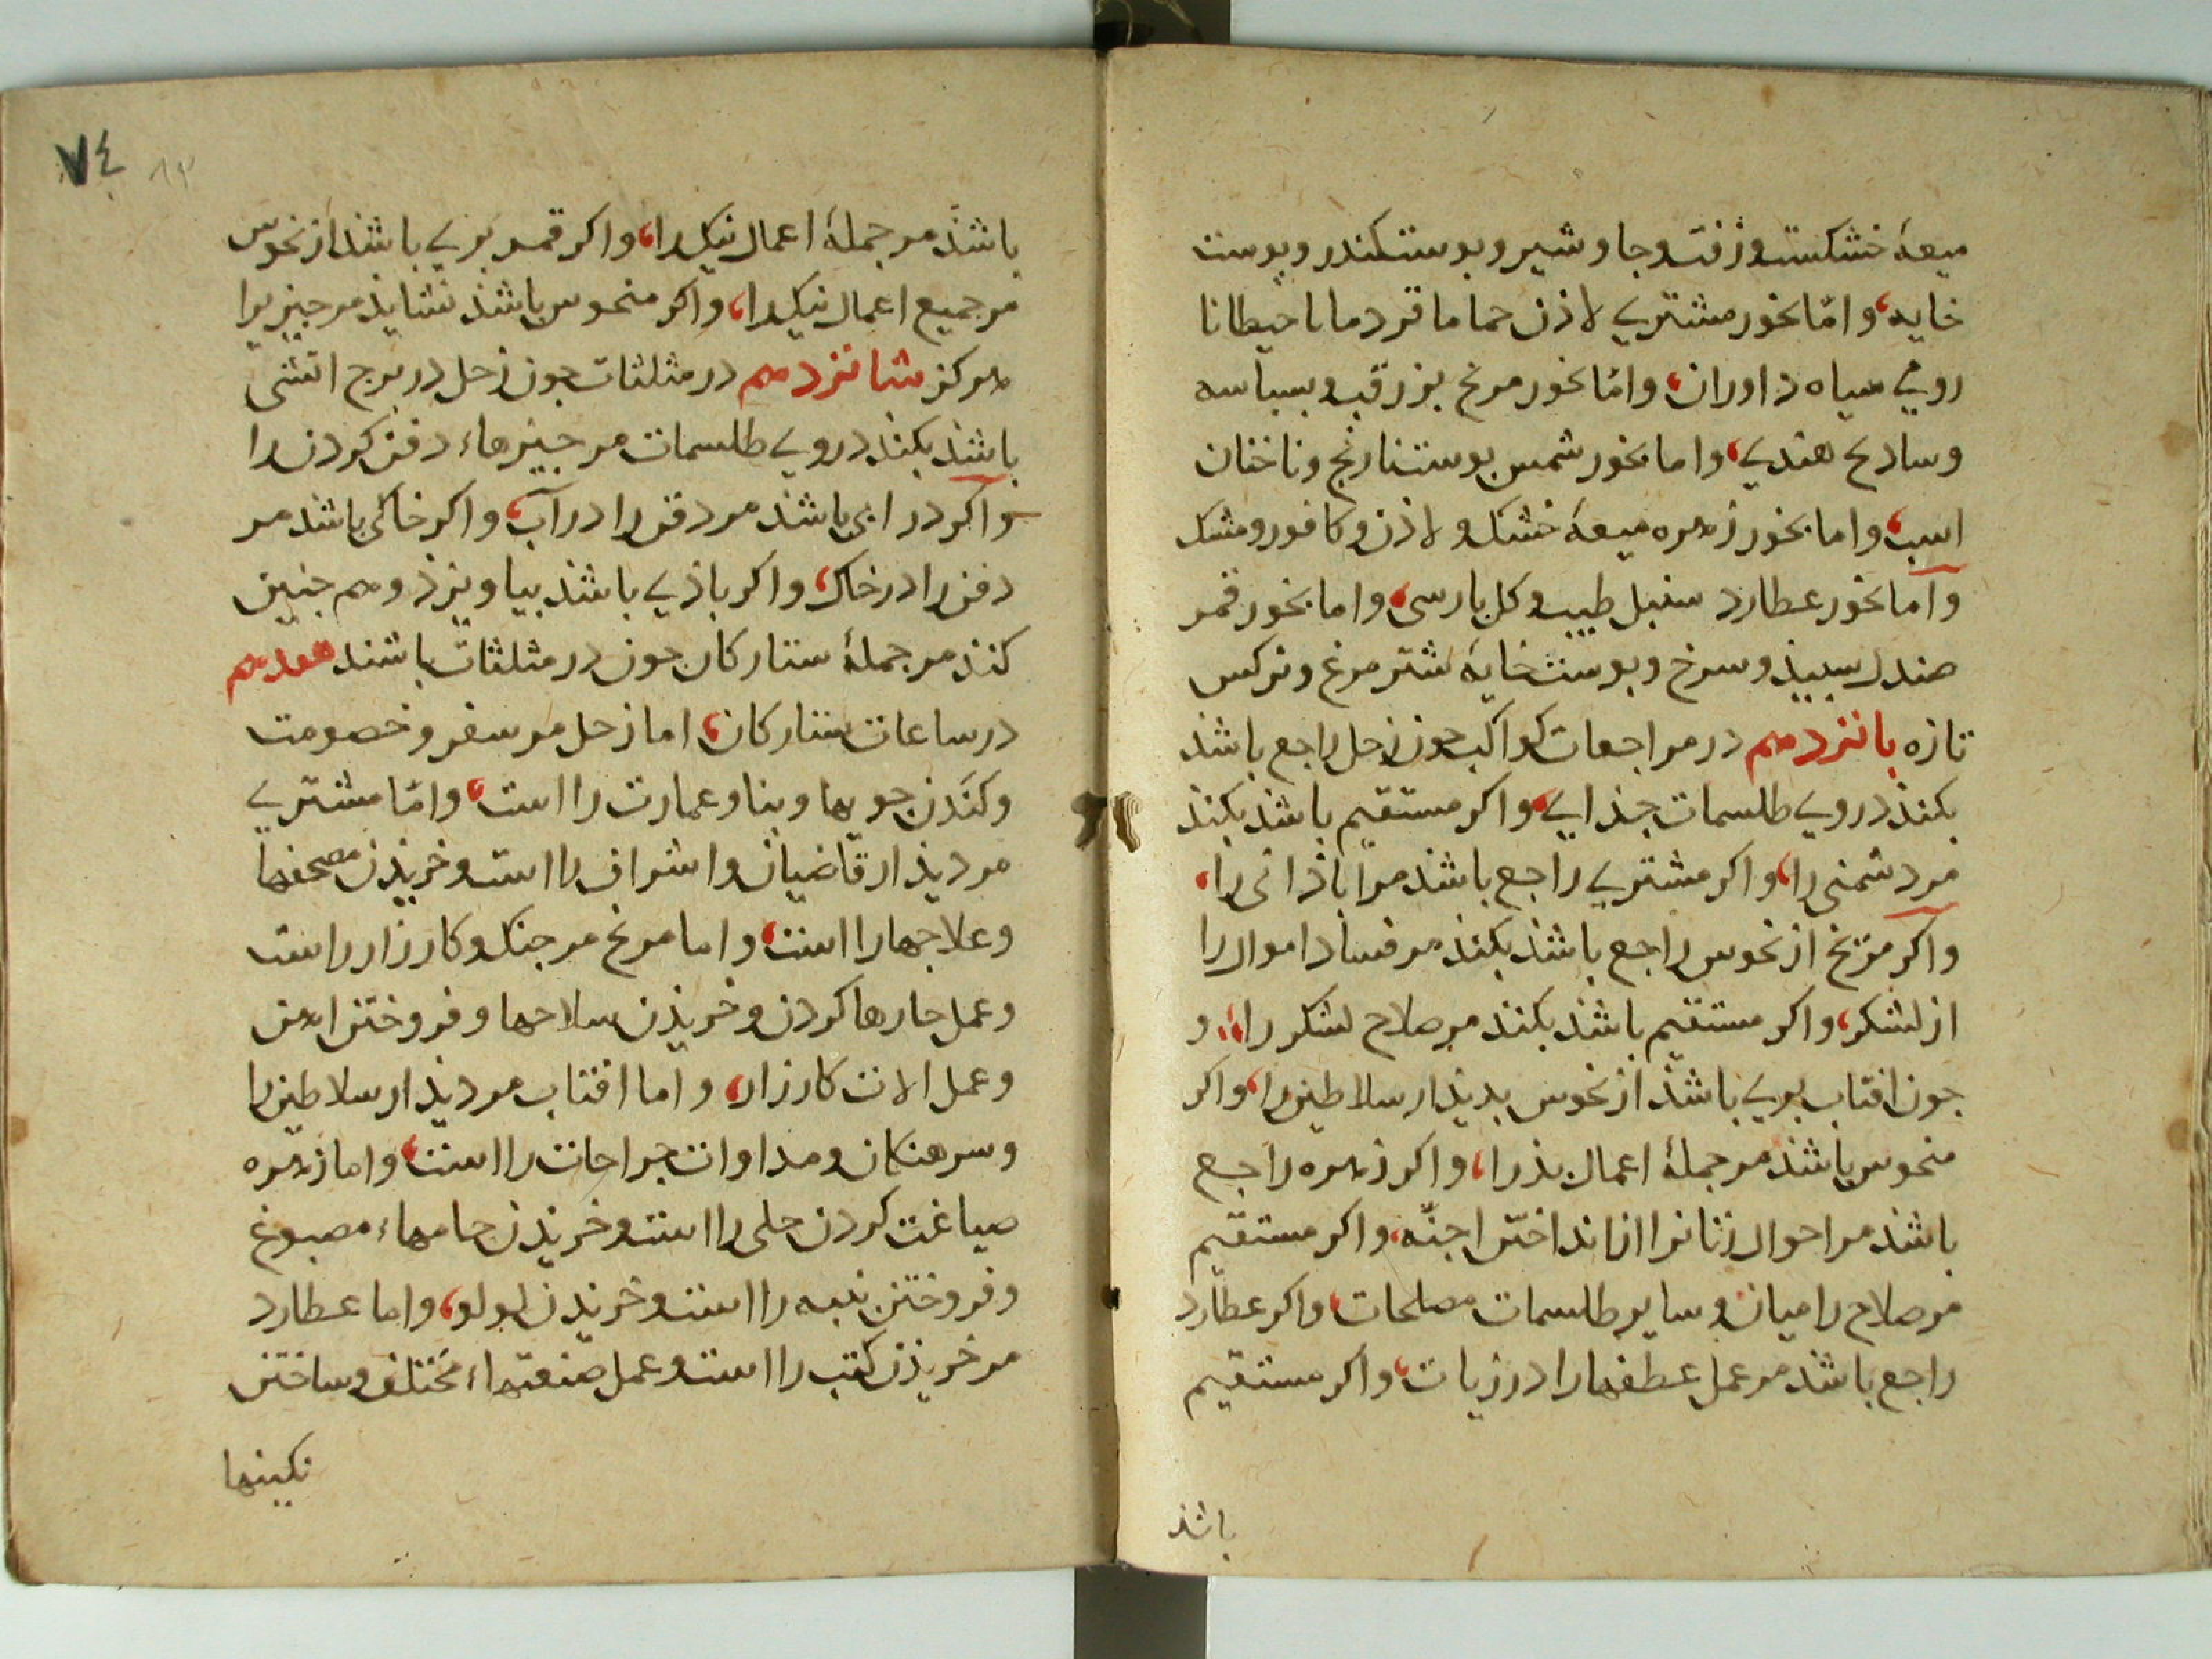 میعهٔ خشکست و زفت و جاوشیر و بوست کندر و بوست
خایه، و امّا بخور مشتری لاذن حماما قردمانا حیطانا
رومی سیاه داوران، و امّا بخور مریخ بزرقب و بسباسه
و سادج هندی، و اما بخور شمس بوست نارنج و ناخنان
اسب، و اما بخور زهره میعهٔ خشک و لاذن و کافور و مشک
و اما بخور عطارد سنبل طیب و کل بارسی، و اما بخور قمر
صندل سبیذ و سرخ و بوست خایهٔ شترمرغ و نرکس
تازه بانزدهم در مراجعات کواکب جون زحل راجع باشذ
بکنذ در وی طلسمات جذایی، و اکر مستقیم باشذ بکنذ
مر دشمنی را، و اکر مشتری راجع باشذ مر اباذانی را،
و اکر مرّیخ از نحوس راجع باشذ بکنذ مر فساد اموال را
از لشکر، و اکر مستقیم باشذ بکنذ مر صلاح لشکر را، و
جون افتاب بری باشذ از نحوس بدیذار سلاطین را، و اکر
منحوس باشذ مر جملهٔ اعمال بذ را، و اکر زهره راجع
باشذ مر احوال زنانرا از انداختن اجنّه، و اکر مستقیم
مر صلاح را میان و سایر طلسمات مصلحات، و اکر عطارد
راجع باشذ مر عمل عطفها را در زیات، و اکر مستقیم
باشذ
٧٤ ٨٣
باشذ مر جملهٔ اعمال نیک را، و اکر قمر بری باشذ از نحوس
مر جمیع اعمال نیک را، و اکر منحوس باشذ نشایذ مر جیزیرا
هرکز شانزدهم در مثلثات جون زحل در برج اتشی
باشذ بکنذ در وی طلسمات مر جیزهاء دفن کردن را
و اکر در ابی باشذ مر دفن را در آب، و اکر خاکی باشذ مر
دفن را در خاک، و اکر باذی باشذ بیاویزذ و هم جنین
کنذ مر جملهٔ ستارکان جون در مثلثات باشند هفدهم
در ساعات ستارکان، اما زحل مر سفر و خصومت
و کندن جویها و بنا و عمارت را است، و امّا مشتری
مر دیذار قاضیان و اشراف را است و خریذن مصحفها
و علاجها را است، و اما مریخ مر جنک و کارزار راست
و عمل جارها کردن و خریذن سلاحها و فروختن اهن
و عمل الات کارزار، و اما افتاب مر دیذار سلاطین را
و سرهنکان و مداوات جراحات را است، و اما زهره
صیاغت کردن حلی را است و خریذن جامهاء مصبوغ
و فروختن بنبه را است و خریذن لولو، و اما عطارد
مر خریذن کتب را است و عمل صنعتهاء مختلف و ساختن
نکینها